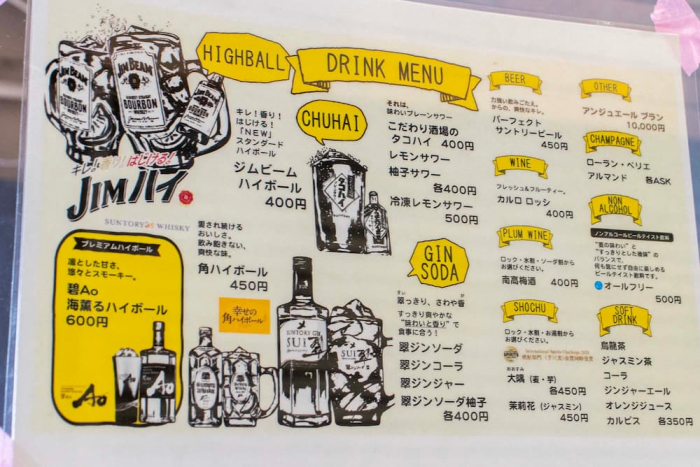 HIGHBALL
DRINK MENU
JIM BEAM
BOURBON
JIM BEAM
BOURBON
JIM BEAM
BOURBON
キレ!香り!はじける!
JIMハイ
SUNTORY WHISKY
キレ!香り!
はじける!
「NEW」
スタンダード
ハイボール
ジムビーム
ハイボール
400円
プレミアムハイボール
凛とした甘さ、
悠々とスモーキー。
碧Ao
海薫るハイボール
600円
Ao
愛され続ける
おいしさ。
飲み飽きない、
爽快な味。
角ハイボール
450円
幸せの
角ハイボール
CHUHAI
タコハイ
それは、
味わいプレーンサワー
こだわり酒場の
タコハイ 400円
レモンサワー
柚子サワー
各400円
冷凍レモンサワー
500円
GIN
SODA
翠っきり、さわや香
すっきり爽やかな
"味わいと香り"で
食事に合う!
翠ジンソーダ
翠ジンコーラ
翠ジンジャー
翠ジンソーダ柚子
各400円
SUNTORY GIN
SUI
翠
BEER
力強い飲みごたえ。
からの、爽快なキレ。
パーフェクト
サントリービール
450円
WINE
フレッシュ&フルーティー。
カルロ ロッシ
400円
PLUM WINE
ロック・水割・ソーダ割から
お選びください。
南高梅酒 400円
SHOCHU
ロック・水割・お湯割から
お選びください。
おおすみ
大隅(麦・芋)
各450円
茉莉花(ジャスミン)
450円
OTHER
アンジュエール ブラン
10,000円
CHAMPAGNE
ローラン・ペリエ
アルマンド 各ASK
NON
ALCOHOL
ノンアルコールビールテイスト飲料
"麦の味わい"と
"すっきりとした後味"の
バランスで、
何も気にせず自由に楽しめる
ビールテイスト飲料です。
オールフリー
500円
SOFT
DRINK
烏龍茶
ジャスミン茶
コーラ
ジンジャーエール
オレンジジュース
カルピス 各350円